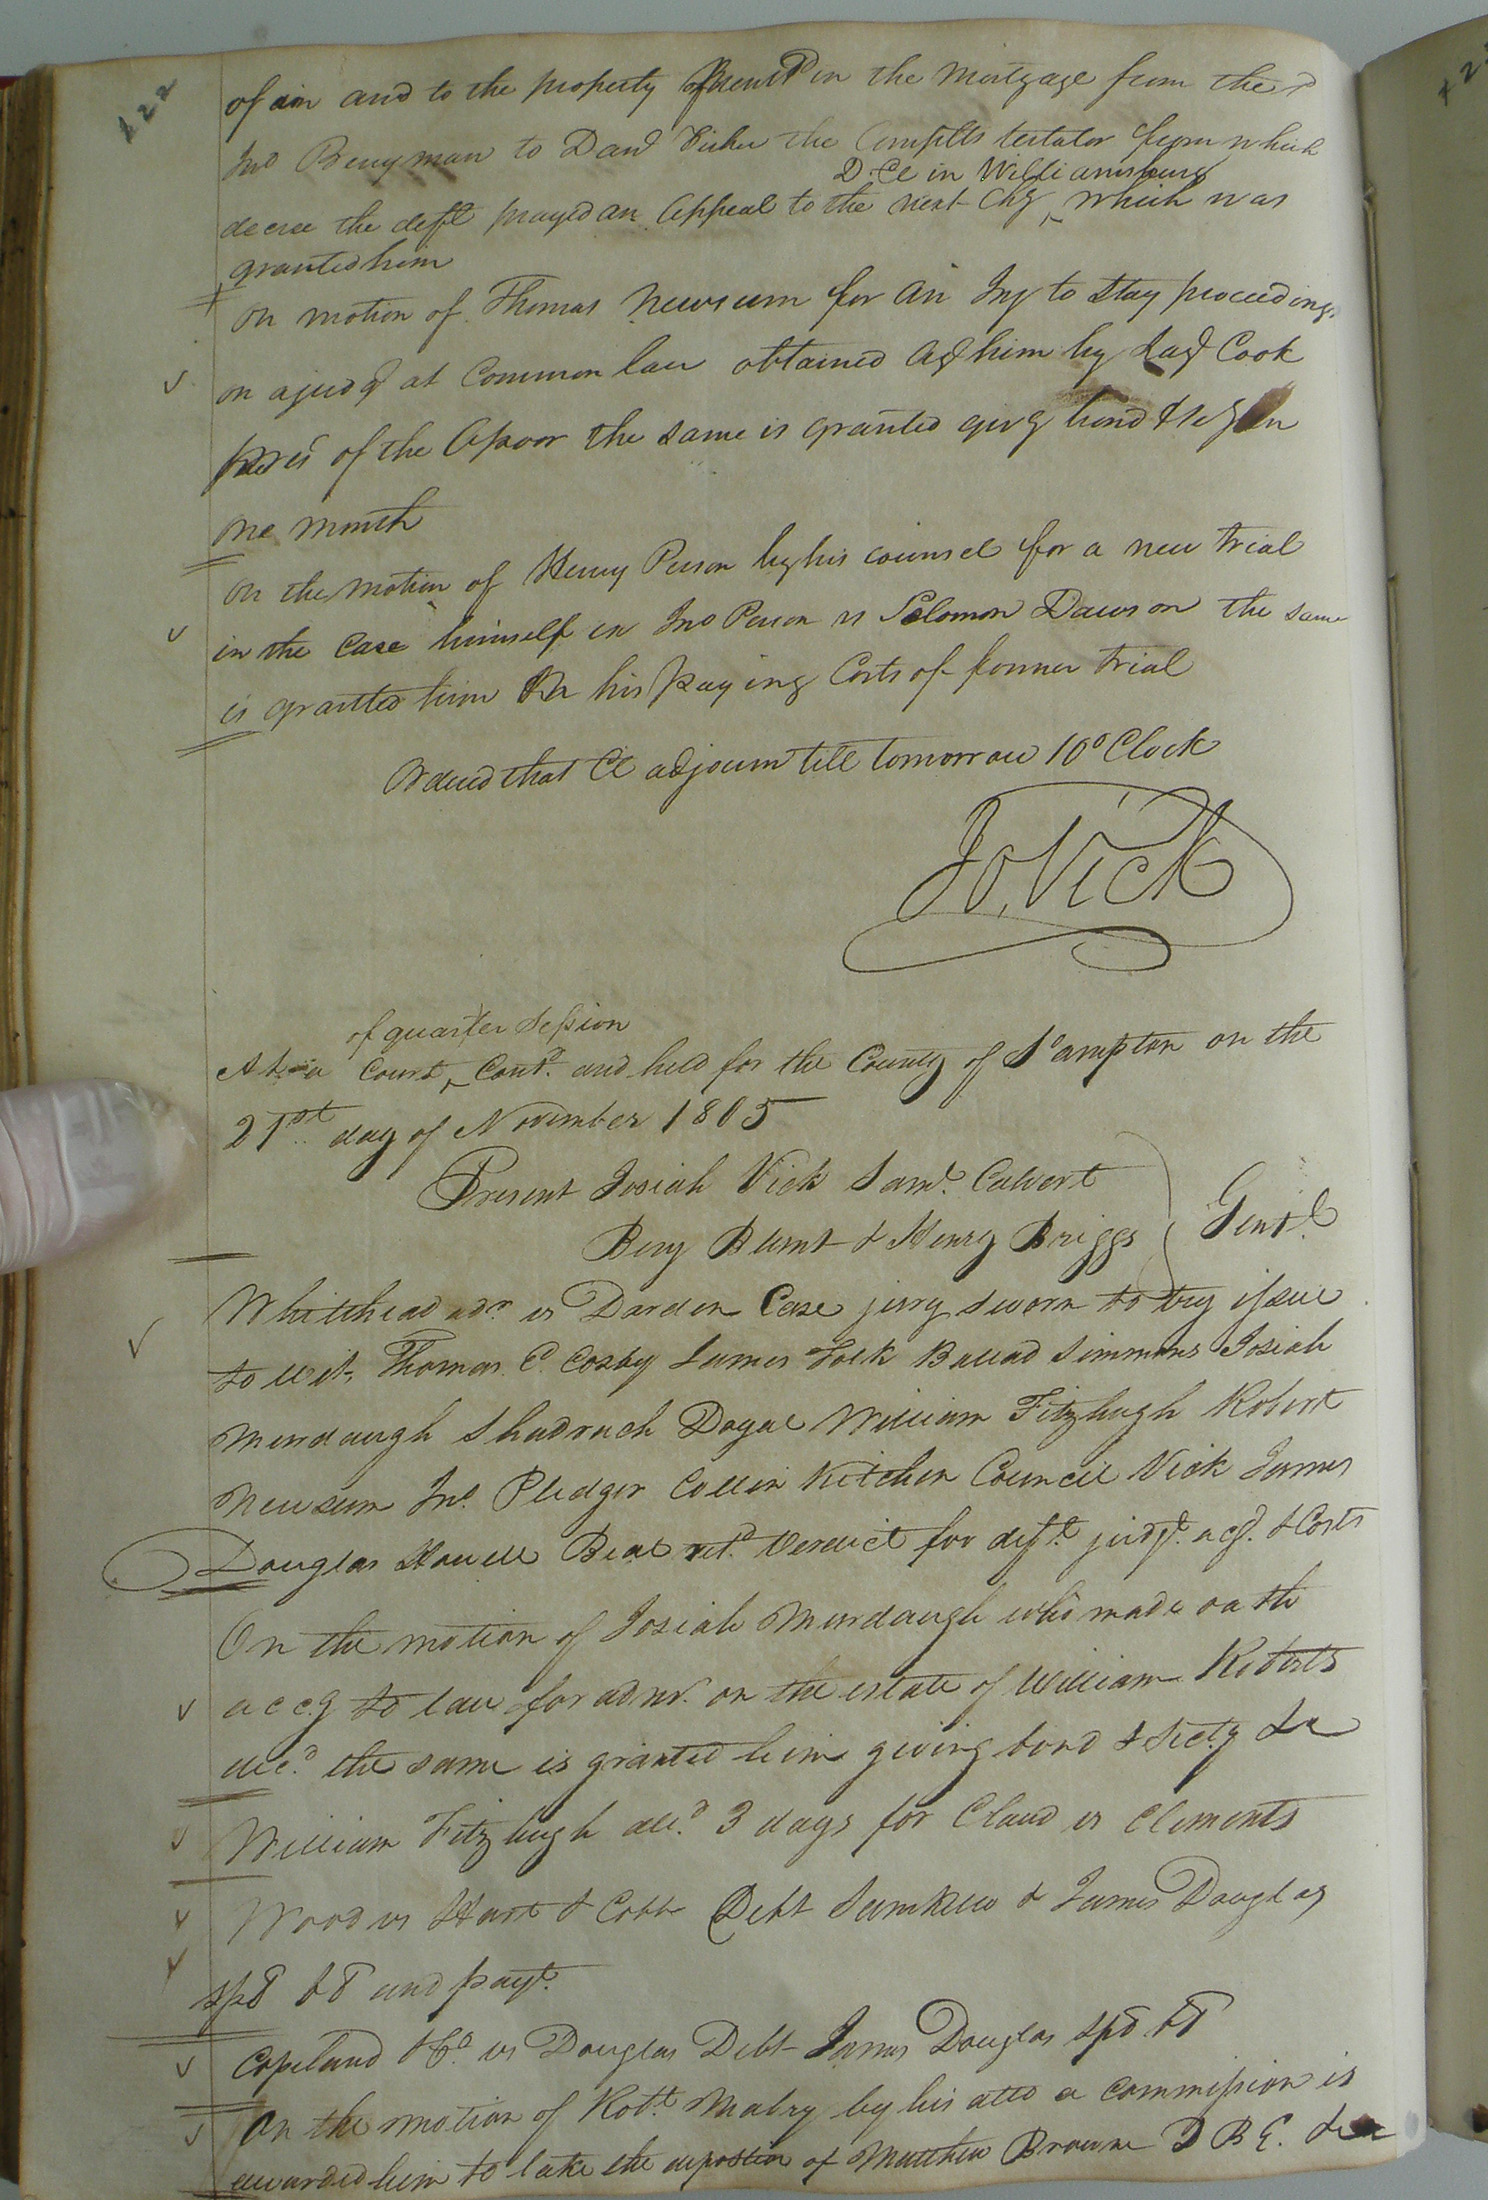 122
of in and to the property in the mortgage from the sd
Jno Berryman to Davd Fisher the Complts testator from which
D. Ct in Williamsburg
decree the deft prayed an Appeal to the next Chy ‸ which was
granted him
On motion of Thomas Newsum for an Inj to Stay proceedings
on a judgt at Common law obtained Agt him by Cook
of the Apoor the same is granted givg bond & in
one month
On the motion of Henry Person by his counsel for a new trial
in the Case himself exr Jno Person vs Solomon Dawson the same
is granted him On his paying Costs of former trial
Ordered that Ct adjourn till tomorrow 10 o Clock
Jo, Vick
of quarter Session
At a Court ‸ Contd. and held for the County of So ampton on the
21st day of November 1805
Present Josiah Vick Saml. Calvert
Benj Blunt & Henry Briggs } Gentl.
Whitehead adr. vs Darden Case jury sworn to try issue
to wit, Thomas C. Cosby James Jack Ballad Simmons Josiah
Murdaugh Shadrach Dogal William Fitzhugh Robert
Newsum Jno. Pledger Collin Kitchen Council Vick James
Douglas Howell Beal retd. Verdict for deft. judgt. accg. & Costs
On the motion of Josiah Murdaugh who made oath
accg to law for admr. on the estate of William Roberts
decd. the same is granted him giving bond & Secty &c
William Fitzhugh alld. 3 days for Claud vs Clements
Wood vs Hart & Cobb Debt Lewkew & James Douglas
spd bd and payt.
Copeland & Co. vs Douglas Debt James Douglas spd. bd
On the motion of Robt. Mabry by his atto a commission is
awarded him to take the depostion of Matthew Browne D B E. &c